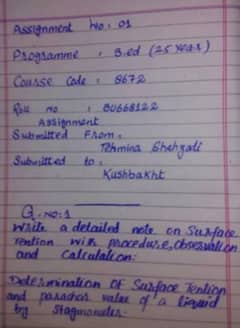 Assignment No: 01
Programme : B.ed (2.5 Years)
Course Code : 8672
Roll no : BU668122
Assignment
Submitted From:
Tehmina Shehzadi
Submitted to:
Kushbakht
Q.NO:1
Write a detailed note on Surface
Tention with procedure, Observation
and Calculation:
Determination Of Surface Tention
and parachor value of a liquid
by Stagmometer.